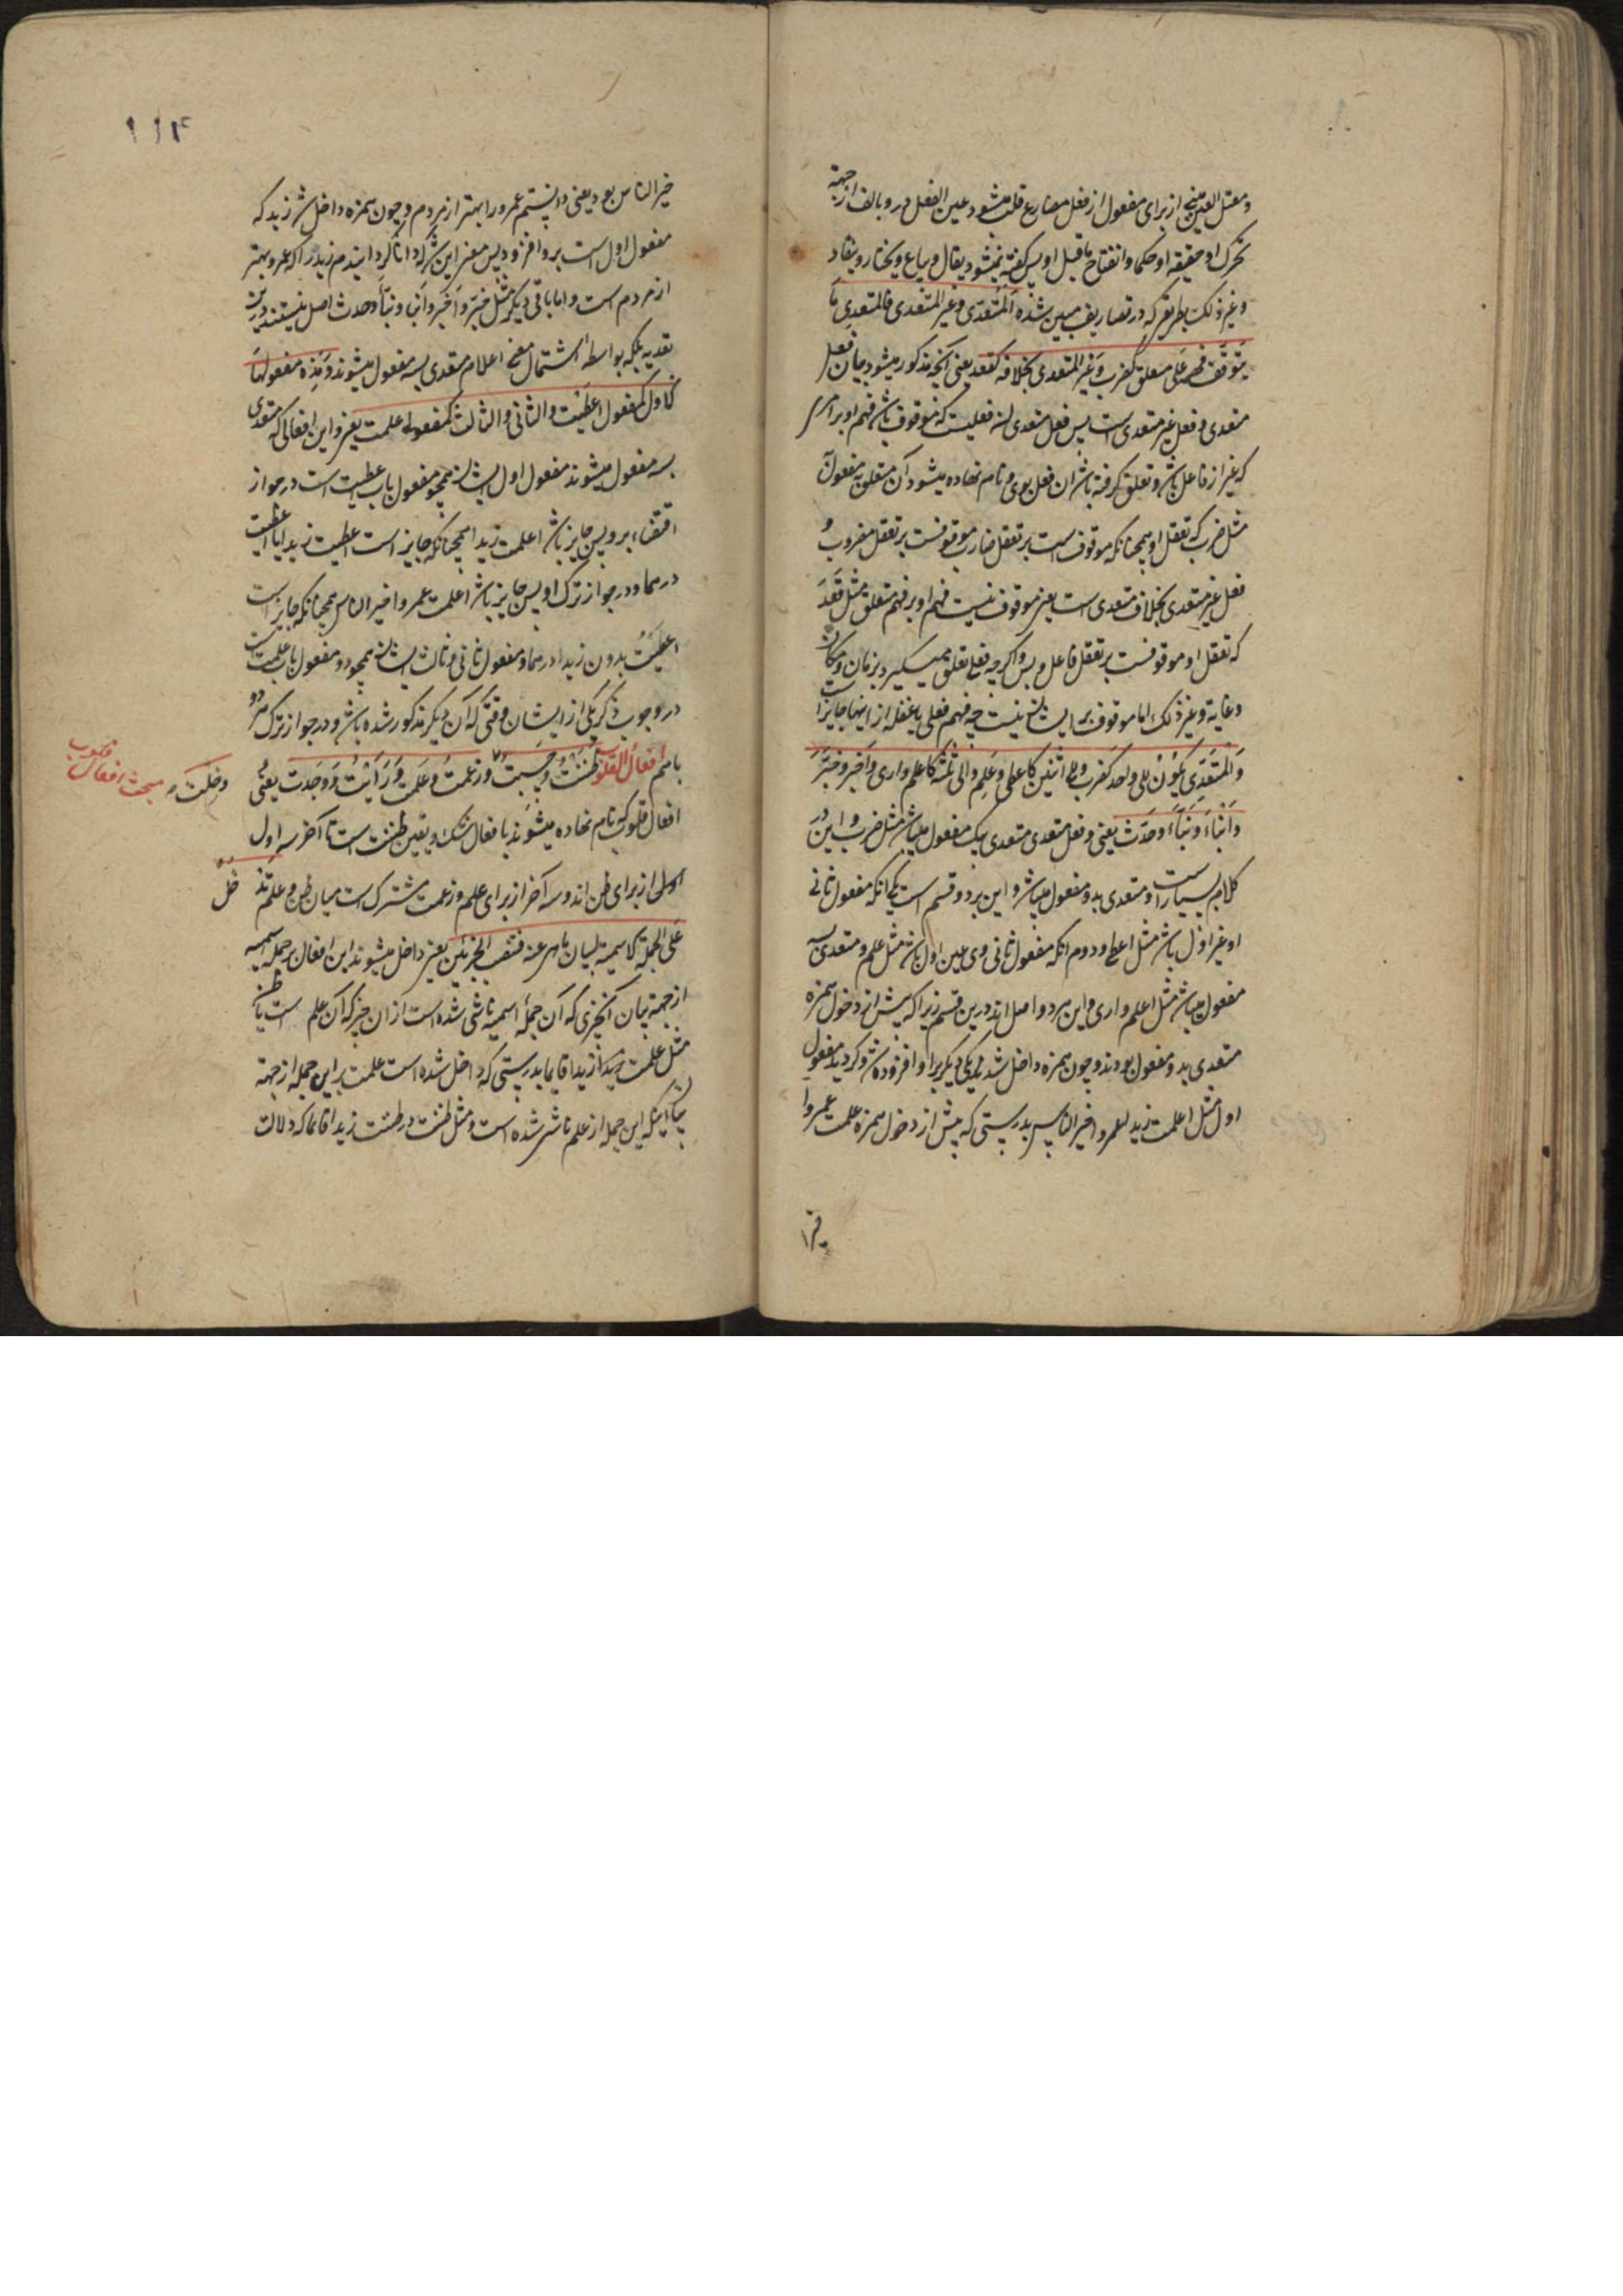 و معتل العین منجی از برای مفعول از فعل مضارع قلب میشود عین الفعل درو بالف از جهة
تحرک او حقیقة او حکما و انفتاح ماقبل او پس گفته میشود یقال و یباع و یختار و ینقاد
و غیر ذلک بطریق که در تصاریف مبین شده المتعدی و غیر المتعدی فالمتعدی ما
یتوقف فهمه علی متعلق کضرب و غیر المتعدی بخلافه کقعد یعنی آنچه مذکور میشود بیان فعل
متعدی و فعل غیر متعدی است پس فعل متعدی آن فعلیست که موقوف باشد فهم او بر امری
که غیر از فاعل باشد و تعلق گرفته باشد آن فعل بوی و نام نهاده میشود آن متعلق به مفعول
مثل ضرب که تعقل او همچنانکه موقوف است بر تعقل ضارب موقوفست بر تعقل مضروب و
فعل غیر متعدی بخلاف متعدی است یعنی موقوف نیست فهم او بر فهم متعلق مثل قعد
که تعقل او موقوفست بر تعقل فاعل و بس و اگرچه فعل تعلق میگیرد بزمان و مکان
و غایة و غیر ذلک اما موقوف بر ایشان نیست چه فهم فعل با غفله از اینها جایز است
والمتعدی یکون الی واحد کضرب و الی اثنین کاعطی و علم و الی ثلثة کاعلم و اری و اخبر و خبر
و انباء و نباء و حدث یعنی و فعل متعدی متعدی بیک مفعول میباشد مثل ضرب و این در
کلام بسیار است و متعدی بدو مفعول میباشد و این بر دو قسم است یکی آنکه مفعول ثانی
او غیر اول باشد مثل اعطی و دوم آنکه مفعول ثانی وی عین اول باشد مثل علم و متعدی بسه
مفعول میباشد مثل اعلم و اری و این هر دو اصل اند درین قسم زیرا که پیش از دخول همزه
متعدی بدو مفعول بودند و چون همزه داخل شد یکی دیگر برو افزوده شد و گردید مفعول
اول مثل اعلمت زیدا عمروا خیر الناس بدرستی که پیش از دخول همزه علمت عمروا
خیر الناس بود یعنی دانستم عمرو را بهتر از مردم و چون همزه داخل شد زید که
مفعول اول است برو افزود پس معنی این شد که دانا گردانیدم زید را که عمرو بهتر
از مردم است و اما باقی دیگر مثل خبر و اخبر و انبا و نبأ و حدث اصل نیستند درین
تعدیه بلکه بواسطه اشتمال معنی اعلام متعدی بسه مفعول میشوند و هذه مفعولها
کالاول کمفعول اعطیت والثانی والثالث کمفعولی علمت یعنی و این افعالی که متعدی
بسه مفعول میشوند مفعول اول ایشان همچو مفعول باب اعطیت است در جواز
اقتصار برو پس جایز باشد اعلمت زیدا همچنانکه جایز است اعطیت زیدا
درهما و در جواز ترک او پس جایز باشد اعلمت عمروا خیر الناس همچنانکه جایز است
اعطیت بدون زیدا درهما و مفعول ثانی و ثالث ایشان همچو دو مفعول باب علمت است
در وجوب ذکر یکی از ایشان وقتی که آن دیگر مذکور شده باشد و در جواز ترک هر دو
با هم افعال القلوب ظننت و حسبت و زعمت و علمت و رأیت و وجدت یعنی
و خلت
مبحث افعال قلوب
افعال قلوب که نام نهاده میشوند بافعال شک و یقین ظننت است تا آخر سه اول
اولی از برای ظن اند و سه آخر از برای علم و زعمت مشترک است میان ظن و علم تد
خل
علی الجملة الاسمیة لبیان ما هی عنه فتنصب الجزئین یعنی داخل میشوند این افعال بر جمله اسمیه
از جهة بیان آنچیزی که آن جملۀ اسمیه ناشی شده است از آن چیز که آن علم است یا ظن
مثل علمت زیدا قایما بدرستی که داخل شده است علمت برین جمله از جهة
بیان اینکه این جمله از علم ناشی شده است و مثل ظننت در ظننت زیدا قائما که دلالت